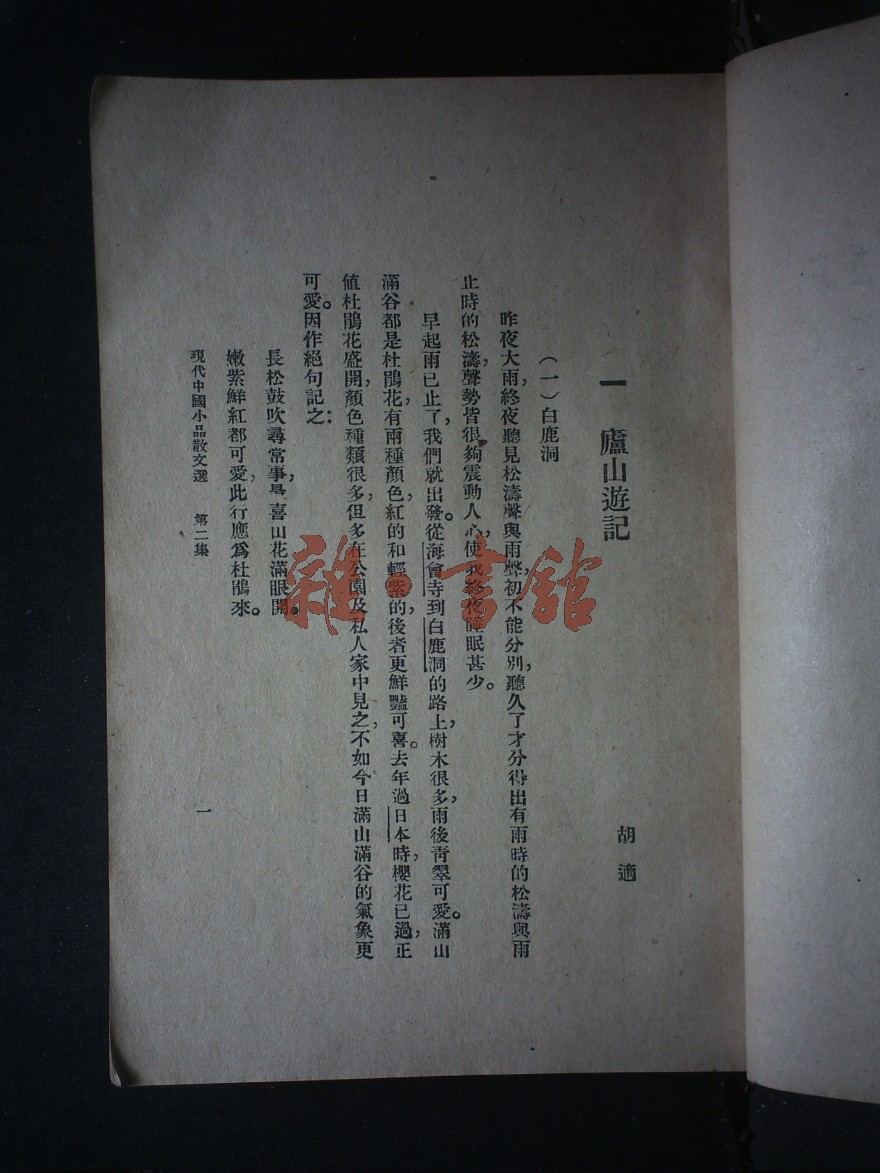 一　廬山遊記
胡適
（一）白鹿洞
昨夜大雨，終夜聽見松濤聲與雨聲，初不能分別，聽久了才分得出有雨時的松濤與雨
止時的松濤，聲勢皆很夠震動人心，使我終夜睡眠甚少。
早起雨已止了，我們就出發。從海會寺到白鹿洞的路上，樹木很多，雨後青翠可愛。滿山
滿谷都是杜鵑花，有兩種顏色，紅的和輕紫的，後者更鮮豔可喜。去年過日本時，櫻花已過，正
值杜鵑花盛開，顏色種類很多，但多在公園及私人家中見之，不如今日滿山滿谷的氣象更
可愛。因作絕句記之：
長松鼓吹尋常事，最喜山花滿眼開。
嫩紫鮮紅都可愛，此行應爲杜鵑來。
現代中國小品散文選　第二集
一
雜·書館